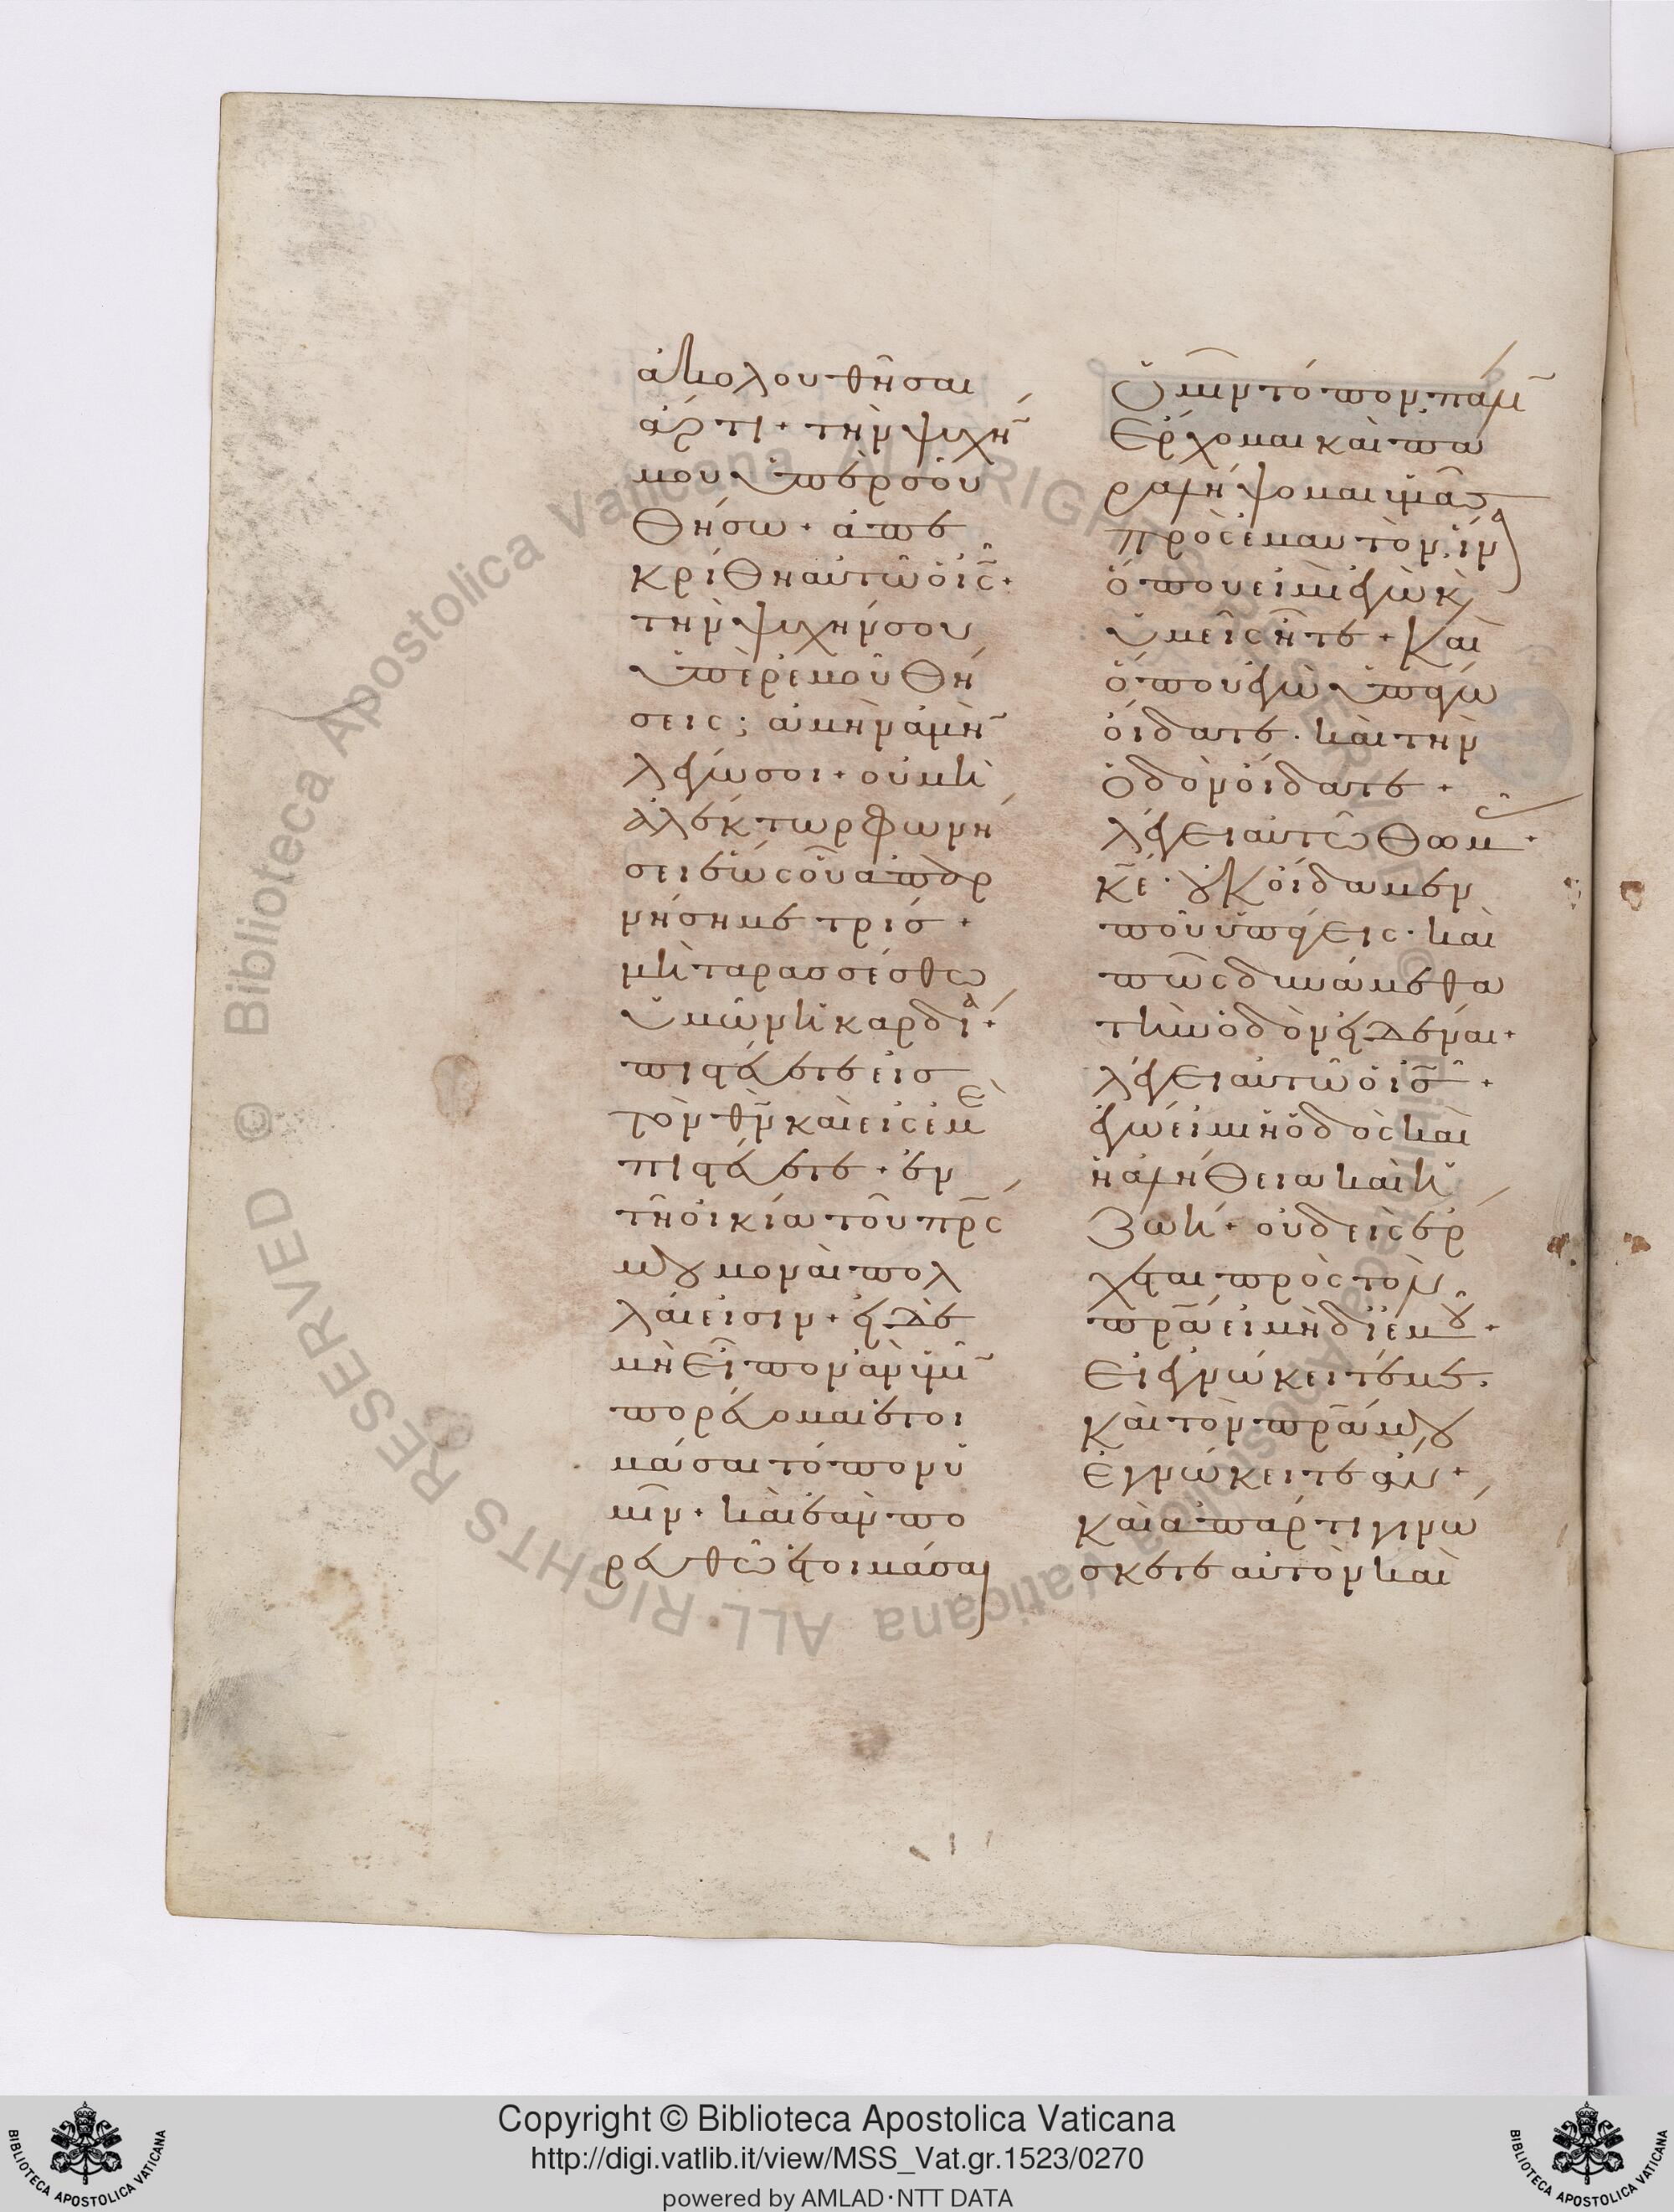 ἀκολουθῆσαι
ἄρτι· τὴν ψυχή̄
μου ὑπὲρ σοῦ
θήσω· ἀπε
κρίθη αὐτῶ ὁ ἰς̄·
τὴν ψυχήν σου
ὑπὲρ ἐμοῦ θή
σεις; ἀμὴν ἀμὴ̄
λέγω σοι· οὐ μὴ
ἀλέκτωρ φωνή
σει ἕως οὗ ἀπαρ
νήσῃ με τρίσ·
μὴ ταρασσέσθω
ὑμῶν ἡ καρδία·
πιστεύετε εἰσ
τὸν θν̄ καὶ εἰς ἐμὲ
πιστεύετε· ἐν
τῆ οἰκία τοῦ πρ̄ς
μου μοναὶ πολ
λαί εἰσιν· εἰ δὲ
μὴ εἶπον ἂν ὑμῖ̄
πορεύομαι ἑτοι
μάσαι τόπον ὑ
μῖν· καὶ ἐὰν πο
ρευθῶ ἑτοιμάσαι
ὑμῖν τόπον πάλῑ
ἔρχομαι καὶ πα
ραλήψομαι ὑμᾶς
πρὸς ἐμαυτὸν· ἵνα
ὅπου εἰμὶ ἐγὼ κ
ὑμεῖς ἦτε· Καὶ
ὅπου ἐγὼ ὑπάγω
οἴδατε· καὶ τὴν
ὁδὸν οἴδατε·
λέγει αὐτῶ Θωμᾶς·
κ̄ε· οὐκ οἴδαμεν
ποῦ ὑπάγεις· καὶ
πῶς δυνάμεθα
τὴν ὁδὸν εἰδέναι·
λέγει αὐτῶ ὁ ισ̄·
ἐγώ εἰμι ἡ ὁδὸς καὶ
ἡ ἀλήθεια καὶ ἡ
ζωή· οὐδεὶς ἔρ
χεται πρὸς τὸν
πρ̄α εἰ μὴ δι ἐμοῦ·
Εἰ ἐγνώκειτέ με·
καὶ τὸν πρ̄α μου
ἐγνώκειτε ἄν·
καὶ ἀπάρτι γινώ
σκετε αὐτὸν καὶ
Copyright © Biblioteca Apostolica Vaticana
http://digi.vatlib.it/view/MSS_Vat.gr.1523/0270
powered by AMLAD·NTT DATA
BIBLIOTECA APOSTOLICA VATICANA
BIBLIOTECA APOSTOLICA VATICANA